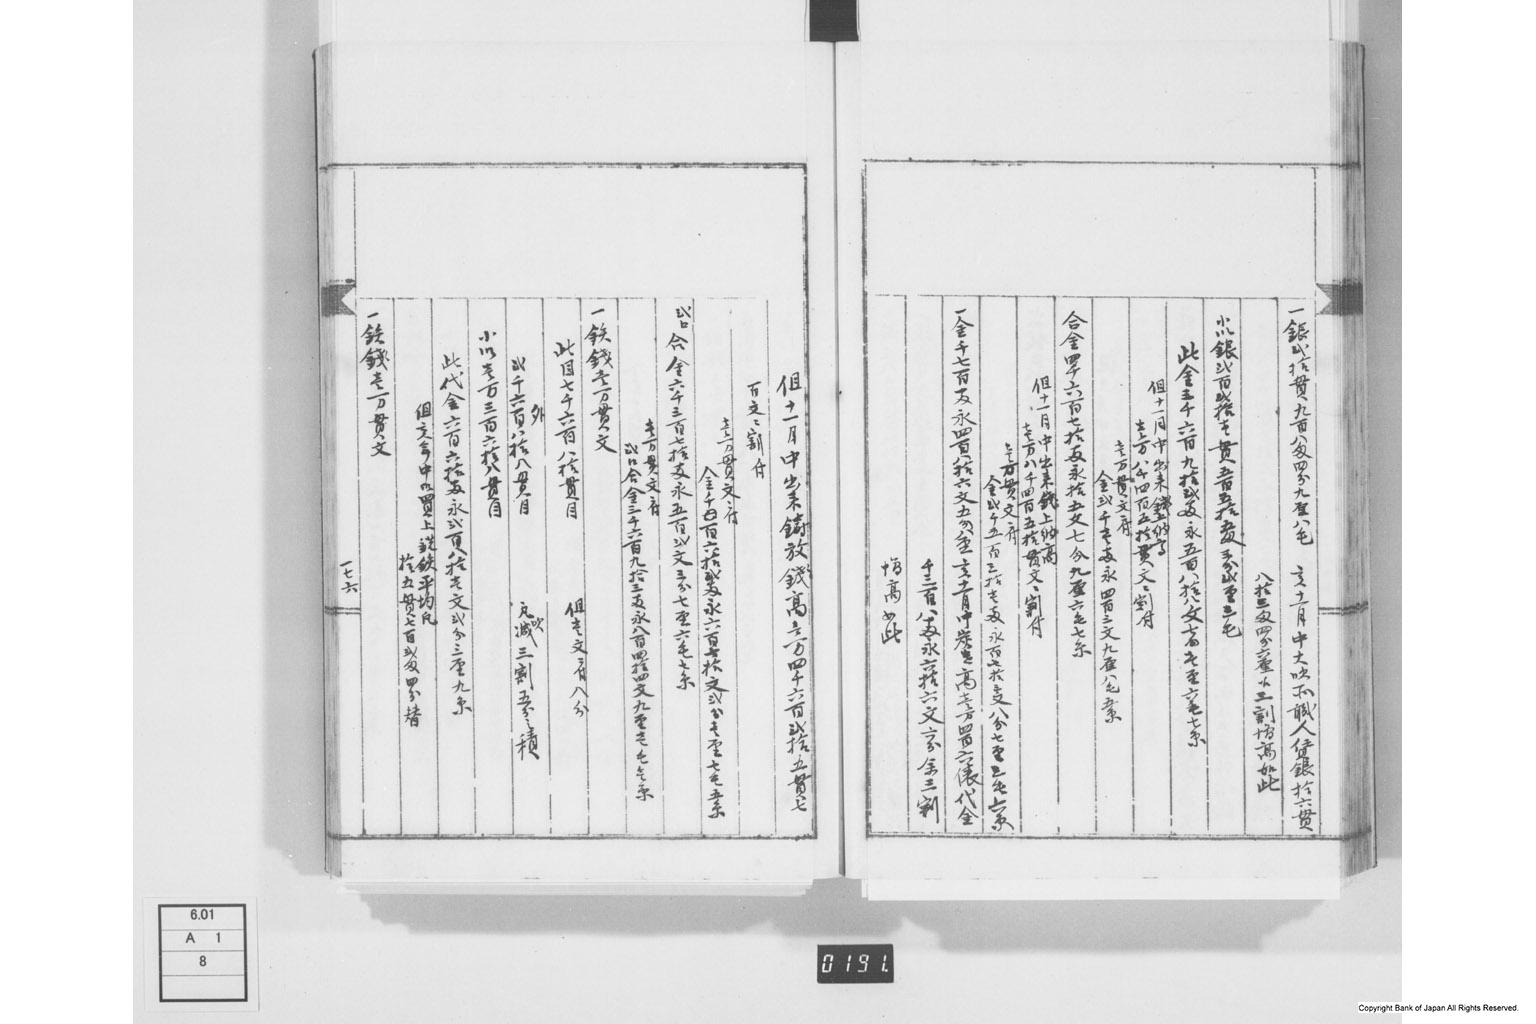 一銀弐拾貫九百八匁四分九厘八毛 亥十一月中大吹所職人賃銀拾六貫
八拾三匁四分六厘ゟ三割増高如此
小以銀弐百弐拾壱貫五百五拾匁三分弐厘三毛
此金三千六百九拾弐両永五百八拾八文 壱厘六毛七糸
但十一月中出来銭上納高
壱万八千四百五拾貫文ニ割付
壱万貫文ニ付
金弐千壱両永四百三文九厘八毛
合金四千六百七拾両永拾五文七分九厘六毛七糸
但十一月中出来銭上納高
壱万八千四百五拾貫文ニ割付
壱万貫文ニ付
金弐千五百三拾壱両永百七拾文八分七厘三毛六糸
一金千七百両永四百拾六文五分厘 亥十一月中炭高壱万四百六俵代金
千三百八両永六拾六文 分余三割
増高如此
但十一月中出来鋳放銭高壱万四千六百弐拾五貫七
百文ニ割付
壱万貫文ニ付
金千四百六拾弐両永六百七拾文弐分壱厘七毛五糸
弐口合金六千三百七拾両永五百弐文三分七厘六毛七糸
壱万貫文ニ付
弐口合金三千六百九拾三両永八百四拾四文九厘壱毛 糸
一鉄銭壱万貫文
此目七千六百八拾貫目 但壱文ニ付八分
外
弐千六百八拾八貫目 吹減三割五分之積
小以壱万三百六拾八貫目
此代金六百六拾両永弐百八拾壱文弐分三厘九糸
但 中以買上銑鉄平均
拾五貫七百弐匁四分替
一鉄銭壱万貫文
一七六
6.01
A 1
8
0191.
Copyright Bank of Japan All Rights Reserved.